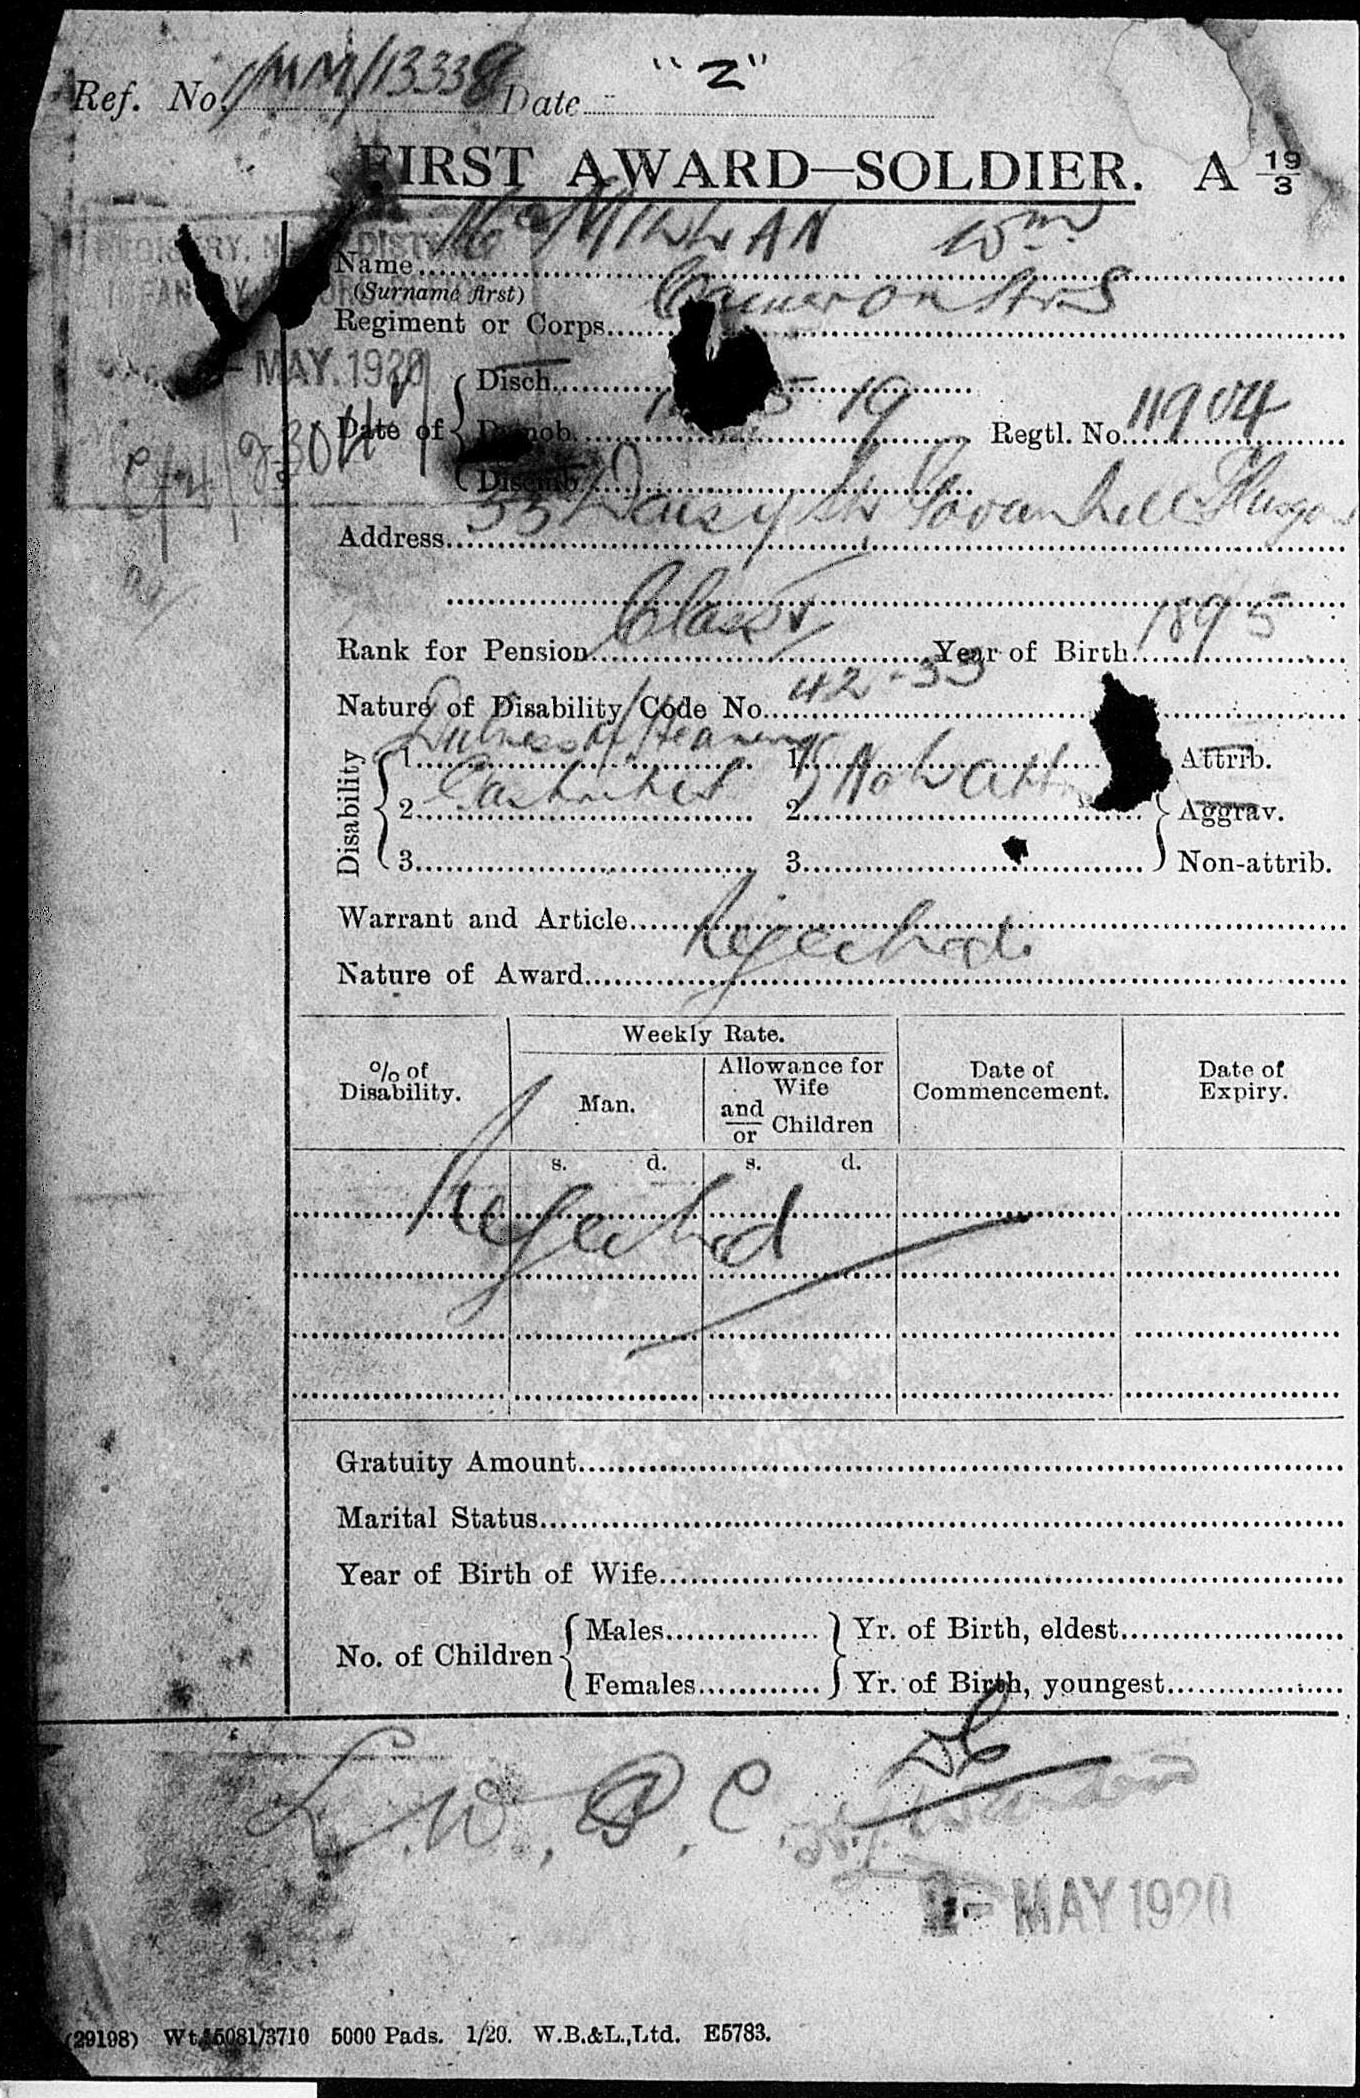 Ref. No. /MM/13338 Date "Z"
FIRST AWARD—SOLDIER. A 19/3
REGISTRY, N DISTR
INFANTRY
MAY. 1920
Name McMILLAN Wm
(Surname first)
Regiment or Corps Cameron Hrs
Date of Disch.
Demob. 5 19 Regtl. No. 11904
Disemb.
Address 33 Daisy St Govanhill Glasgow
Rank for Pension Class V Year of Birth 1895
Nature of Disability Code No. 42-33
Disability
1 Dulness of Hearing 1 Not Att Attrib.
2 Gastritis 2 Aggrav.
3 3 Non-attrib.
Warrant and Article
Rejected
Nature of Award
% of Disability. Weekly Rate. Man. Allowance for Wife and/or Children Date of Commencement. Date of Expiry.
s. d. s. d.
Rejected
Gratuity Amount
Marital Status
Year of Birth of Wife
No. of Children Males Yr. of Birth, eldest
Females Yr. of Birth, youngest
L.W.P.C.
MAY 1920
(29198) Wt. 15081/3710 5000 Pads. 1/20. W.B.&L.,Ltd. E5783.